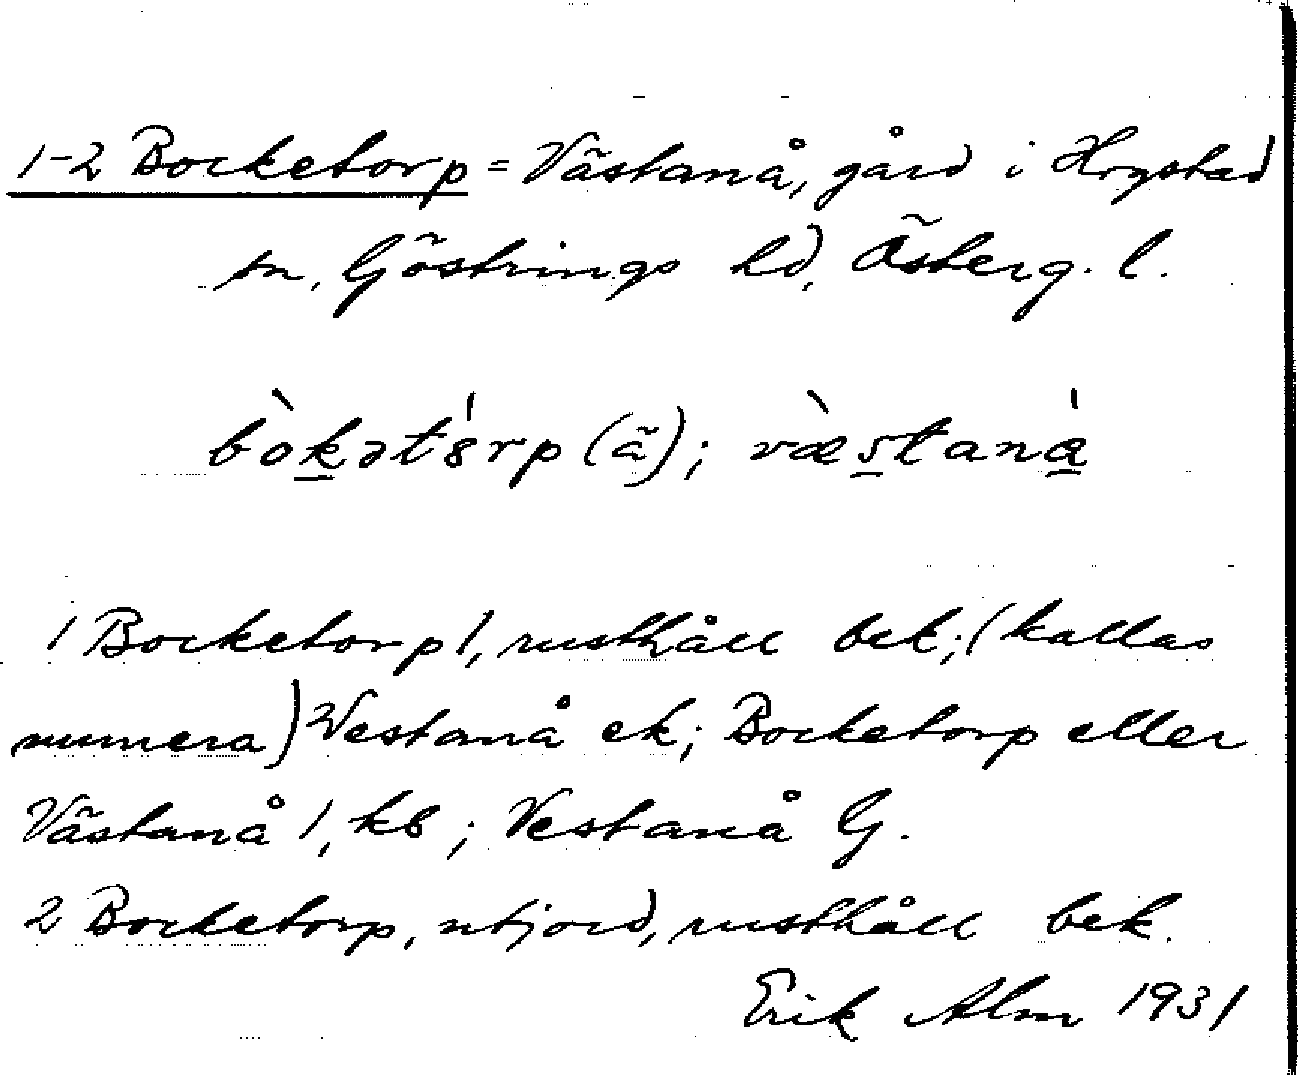 1-2 Bocketorp = Västanå, gård i Hogstad
sn, Göstrings hd, Österg. l.
bòkətórp (ã); væstaná
1 Bocketorp 1, rusthåll bek; (kallas
numera) Westanå ek; Bocketorp eller
Västanå 1, kb; Vestanå G.
2 Bocketorp, utjord, rusthåll bek.
Erik Alm 1931